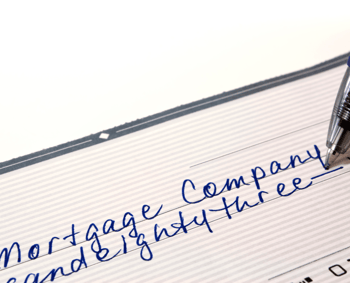 Mortgage Company
and eighty three